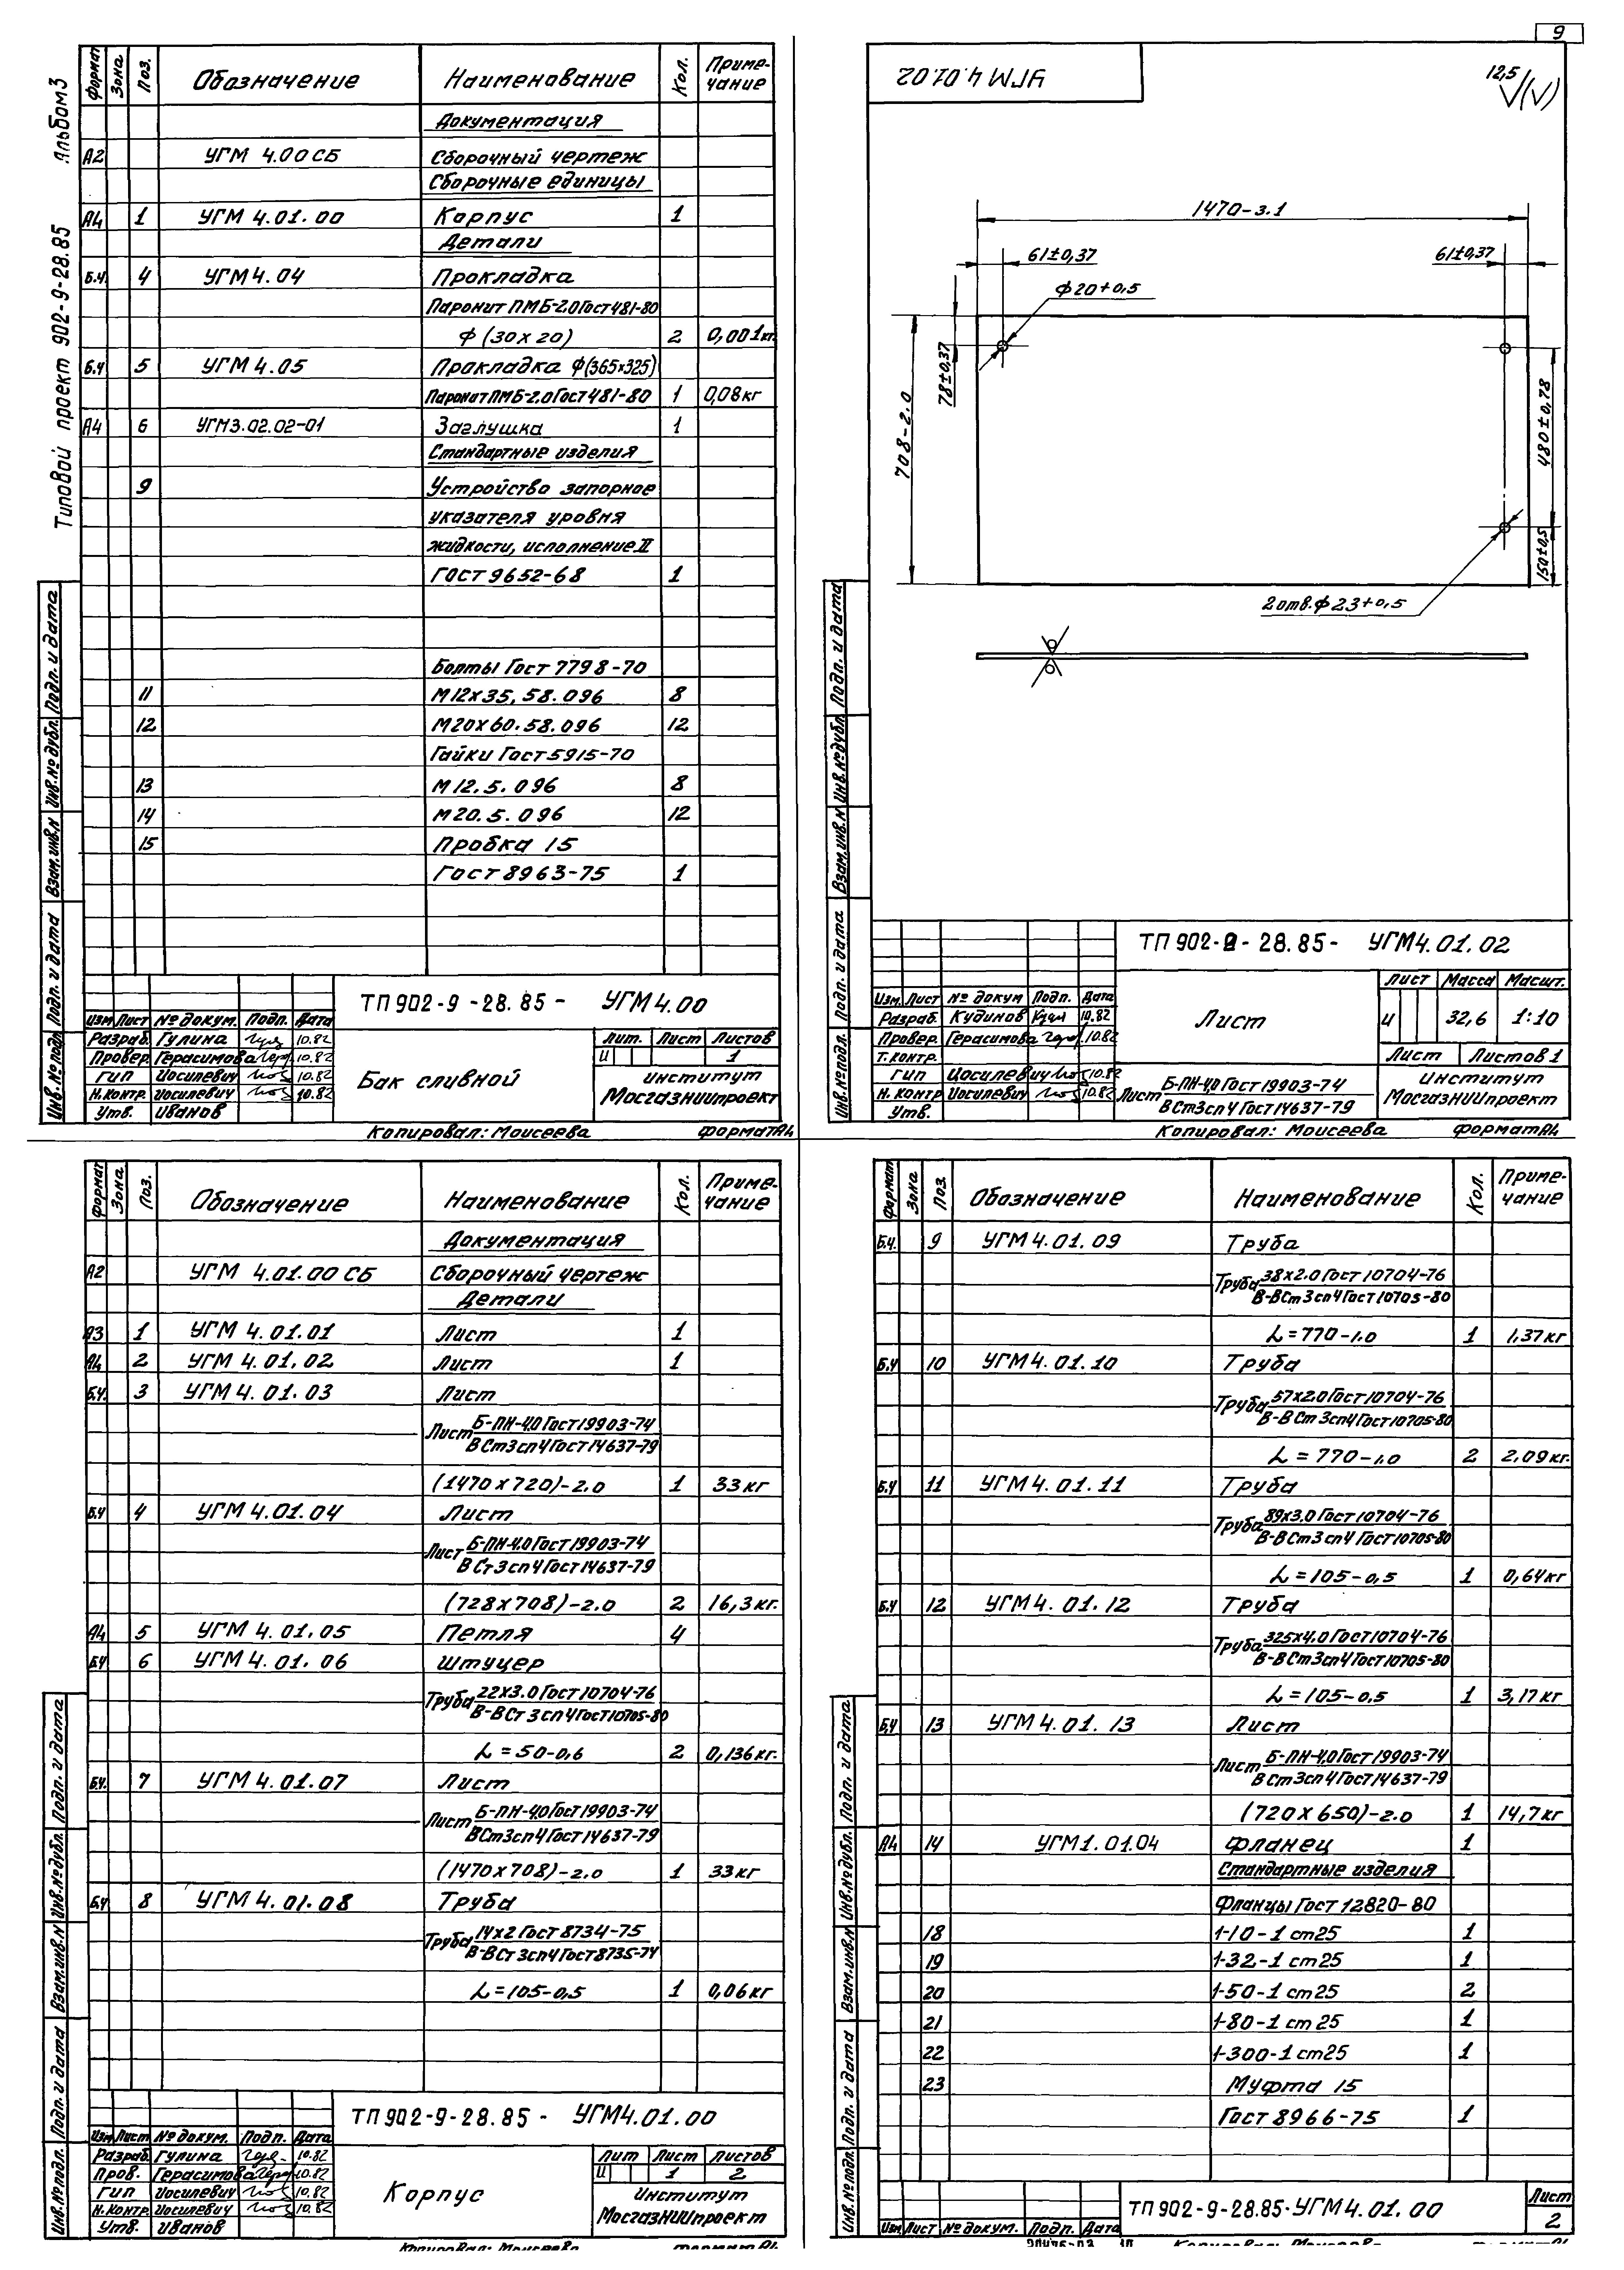 9
Альбом 3
Типовой проект 902-9-28.85
Формат Зона Поз. Обозначение Наименование Кол. Приме-чание
Документация
А2 УГМ 4.00 СБ Сборочный чертеж
Сборочные единицы
А4 1 УГМ 4.01.00 Корпус 1
Детали
Б.ч. 4 УГМ 4.04 Прокладка
Паронит ПМБ-2.0 Гост 481-80
ф (30 х 20) 2 0,001 кг.
Б.ч 5 УГМ 4.05 Прокладка ф(365х325)
Паронит ПМБ-2.0 Гост 481-80 1 0,08 кг
А4 6 УГМ3.02.02-01 Заглушка 1
Стандартные изделия
9 Устройство запорное
указателя уровня
жидкости, исполнение II
Гост 9652-68 1
Болты Гост 7798-70
11 М12х35.58.096 8
12 М20х60.58.096 12
Гайки Гост 5915-70
13 М12.5.096 8
14 М20.5.096 12
15 Пробка 15
Гост 8963-75 1
Инв.№ подл. Подп. и дата Взам.инв.№ Инв.№ дубл. Подп. и дата
ТП 902-9-28.85- УГМ4.00
Изм Лист № докум. Подп. Дата
Разраб. Гулина 10.82
Провер. Герасимова 10.82
ГИП Иосилевич 10.82
Н.контр. Иосилевич 10.82
Утв. Иванов
Бак сливной
Лит. Лист Листов
И 1
Институт
МосгазНИИпроект
Копировал: Моисеева Формат А4
УГМ 4.01.02
12,5 √(√)
1470-3.1
61±0,37 61±0,37
ф20+0,5
78±0,37
708-2.0
480±0,78
150±0,5
2отв.ф23+0,5
Инв.№ подл. Подп. и дата Взам.инв.№ Инв.№ дубл. Подп. и дата
ТП 902-9-28.85- УГМ4.01.02
Изм. Лист № докум Подп. Дата
Разраб. Кудинов 10.82
Провер. Герасимова 10.82
Т.контр.
ГИП Иосилевич 10.82
Н.контр Иосилевич 10.82
Утв.
Лист
Лист Масса Масшт.
И 32,6 1:10
Лист Листов 1
Лист Б-ПН-4,0 Гост 19903-74
ВСт3сп4 Гост 14637-79
Институт
МосгазНИИпроект
Копировал: Моисеева Формат А4
Формат Зона Поз. Обозначение Наименование Кол. Приме-чание
Документация
А2 УГМ 4.01.00 СБ Сборочный чертеж
Детали
А3 1 УГМ 4.01.01 Лист 1
А4 2 УГМ 4.01.02 Лист 1
Б.ч. 3 УГМ 4.01.03 Лист
Лист Б-ПН-4,0 Гост 19903-74
ВСт3сп4 Гост 14637-79
(1470 х 720)-2.0 1 33 кг
Б.ч 4 УГМ 4.01.04 Лист
Лист Б-ПН-4,0 Гост 19903-74
ВСт3сп4 Гост 14637-79
(728 х 708)-2.0 2 16,3 кг.
А4 5 УГМ 4.01.05 Петля 4
Б.ч 6 УГМ 4.01.06 Штуцер
Труба 22х3.0 Гост 10704-76
В-ВСт3сп4 Гост 10705-80
L = 50-0,6 2 0,136 кг.
Б.ч. 7 УГМ 4.01.07 Лист
Лист Б-ПН-4,0 Гост 19903-74
ВСт3сп4 Гост 14637-79
(1470 х 708)-2.0 1 33 кг
Б.ч 8 УГМ 4.01.08 Труба
Труба 14х2 Гост 8734-75
В-ВСт3сп4 Гост 8735-74
L=105-0,5 1 0,06 кг
Инв.№ подл. Подп. и дата Взам.инв.№ Инв.№ дубл. Подп. и дата
ТП 902-9-28.85- УГМ4.01.00
Изм Лист № докум. Подп. Дата
Разраб. Гулина 10.82
Пров. Герасимова 10.82
ГИП Иосилевич 10.82
Н.контр. Иосилевич 10.82
Утв. Иванов
Корпус
Лит Лист Листов
И 1 2
Институт
МосгазНИИпроект
Копировал: Моисеева Формат А4
Формат Зона Поз. Обозначение Наименование Кол. Приме-чание
Б.ч. 9 УГМ 4.01.09 Труба
Труба 38х2.0 Гост 10704-76
В-ВСт3сп4 Гост 10705-80
L=770-1.0 1 1,37 кг
Б.ч 10 УГМ 4.01.10 Труба
Труба 57х2.0 Гост 10704-76
В-ВСт3сп4 Гост 10705-80
L = 770-1.0 2 2,09 кг.
Б.ч 11 УГМ 4.01.11 Труба
Труба 89х3.0 Гост 10704-76
В-ВСт3сп4 Гост 10705-80
L=105-0,5 1 0,64 кг
Б.ч 12 УГМ 4.01.12 Труба
Труба 325х4.0 Гост 10704-76
В-ВСт3сп4 Гост 10705-80
L=105-0,5 1 3,17 кг
Б.ч 13 УГМ 4.01.13 Лист
Лист Б-ПН-4,0 Гост 19903-74
ВСт3сп4 Гост 14637-79
(720 х 650)-2.0 1 14,7 кг
А4 14 УГМ 1.01.04 Фланец 1
Стандартные изделия
Фланцы Гост 12820-80
18 1-10-1 ст25 1
19 1-32-1 ст25 1
20 1-50-1 ст25 2
21 1-80-1 ст25 1
22 1-300-1 ст25 1
23 Муфта 15
Гост 8966-75 1
Инв.№ подл. Подп. и дата Взам.инв.№ Инв.№ дубл. Подп. и дата
Изм Лист № докум. Подп. Дата
ТП 902-9-28.85-УГМ4.01.00
Лист
2